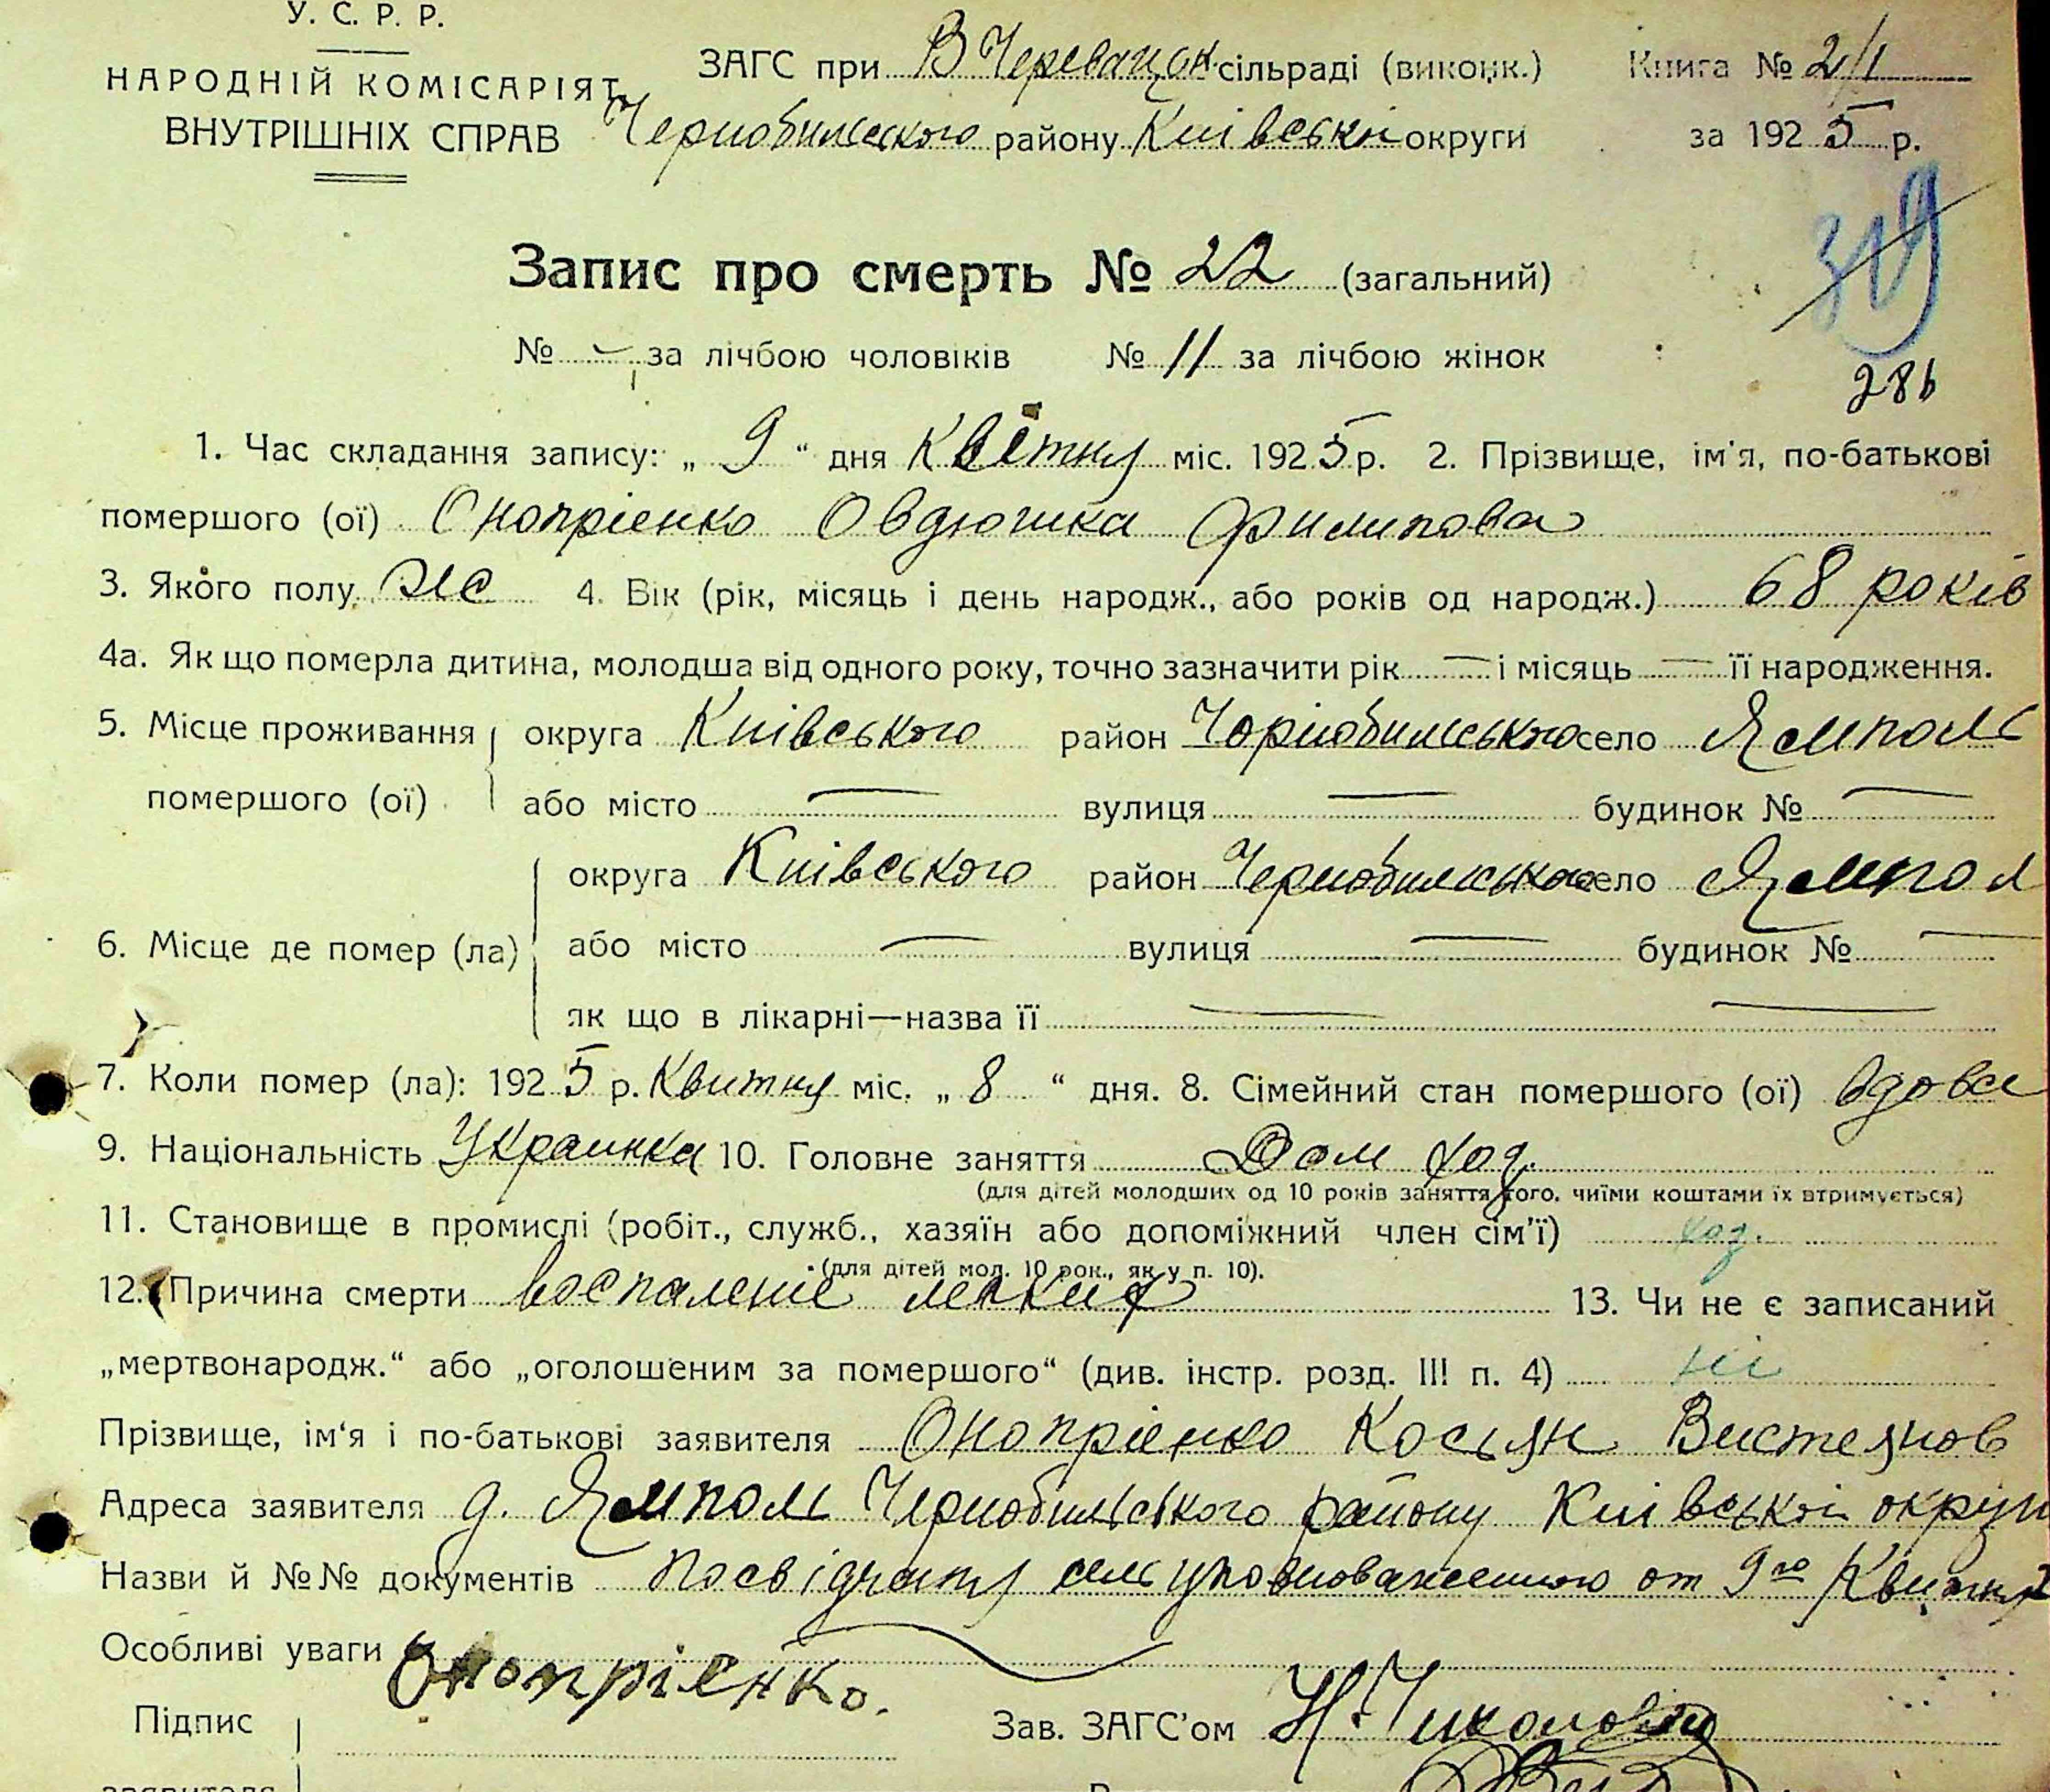 У. С. Р. Р.
НАРОДНІЙ КОМІСАРІЯТ
ВНУТРІШНІХ СПРАВ
ЗАГС при В Череващск. сільраді (виконк.) Книга № 2/1
Чернобильского району Київськоі округи за 1925 р.
319
Запис про смерть № 22 (загальний)
№ — за лічбою чоловіків № 11 за лічбою жінок
286
1. Час складання запису: „ 9 “ дня Квітня міс. 1925 р. 2. Прізвище, ім'я, по-батькові
помершого (ої) Онопріенко Овдюшка Филипова
3. Якого полу же 4. Вік (рік, місяць і день народж., або років од народж.) 68 років
4а. Як що померла дитина, молодша від одного року, точно зазначити рік — і місяць — її народження.
5. Місце проживання помершого (ої) округа Київського район Чорнобильського село Ямполь
або місто — вулиця — будинок № —
6. Місце де помер (ла) округа Київського район Чернобильського село Ямпол
або місто — вулиця — будинок № —
як що в лікарні—назва її — —
7. Коли помер (ла): 1925 р. Квитня міс. „ 8 “ дня. 8. Сімейний стан помершого (ої) вдова
9. Національність Украинка 10. Головне заняття Дом хоз.
(для дітей молодших од 10 років заняття того, чиїми коштами їх втримується)
11. Становище в промислі (робіт., служб., хазяїн або допоміжний член сім'ї) хоз.
(для дітей мол. 10 рок., як у п. 10).
12. Причина смерти воспаление легких 13. Чи не є записаний
„мертвонародж.“ або „оголошеним за помершого“ (див. інстр. розд. III п. 4) ні
Прізвище, ім‘я і по-батькові заявителя Онопріенко Косьян
Адреса заявителя д. Ямполь Чернобильського району Київськоі округи
Назви й №№ документів посвідчит сельуповноваженного от 9го Квитня
Особливі уваги
Онопрієнко.
Підпис
заявителя
Зав. ЗАГС'ом Н.